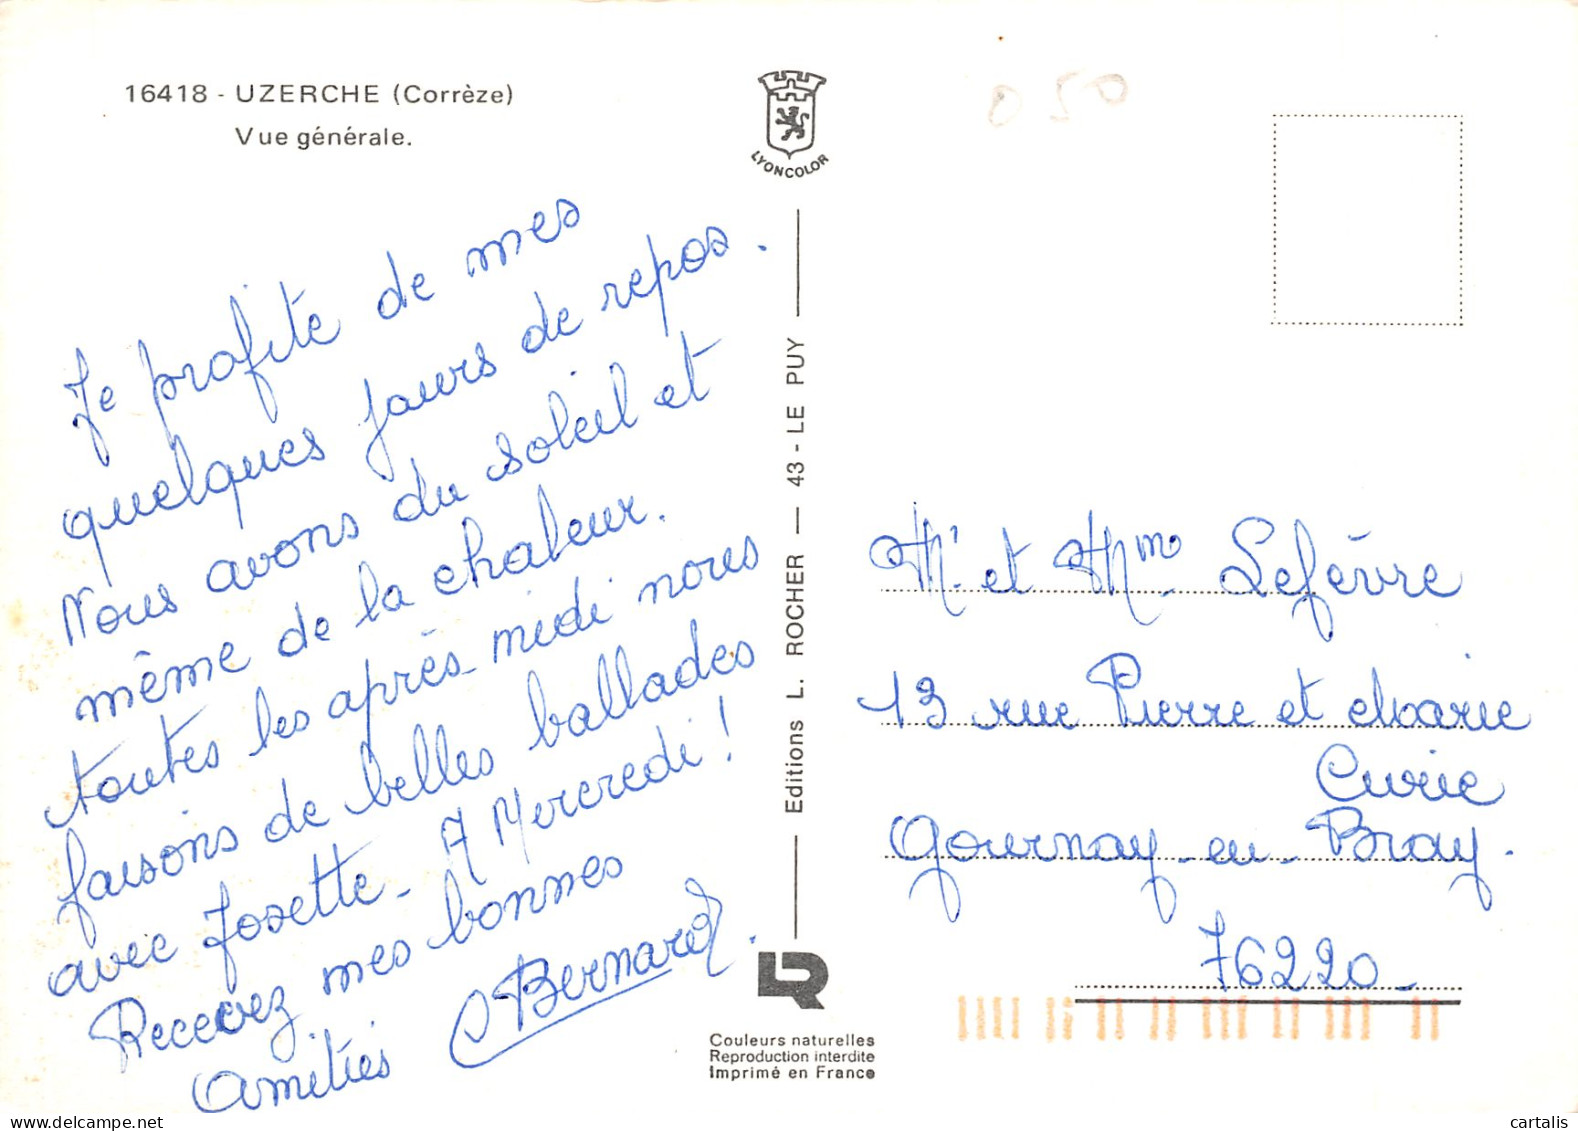 16418 - UZERCHE (Corrèze)
Vue générale.
LYONCOLOR
050
Je profite de mes
quelques jours de repos.
Nous avons du soleil et
même de la chaleur.
toutes les après-midi nous
faisons de belles ballades
avec Josette - A Mercredi !
Recevez mes bonnes
Amitiés Bernard.
Editions L. ROCHER — 43 - LE PUY
LR
Couleurs naturelles
Reproduction interdite
Imprimé en France
M. et Mme Lefèvre
13 rue Pierre et Marie
Curie
Gournay-en-Bray.
76220-
delcampe.net
cartalis